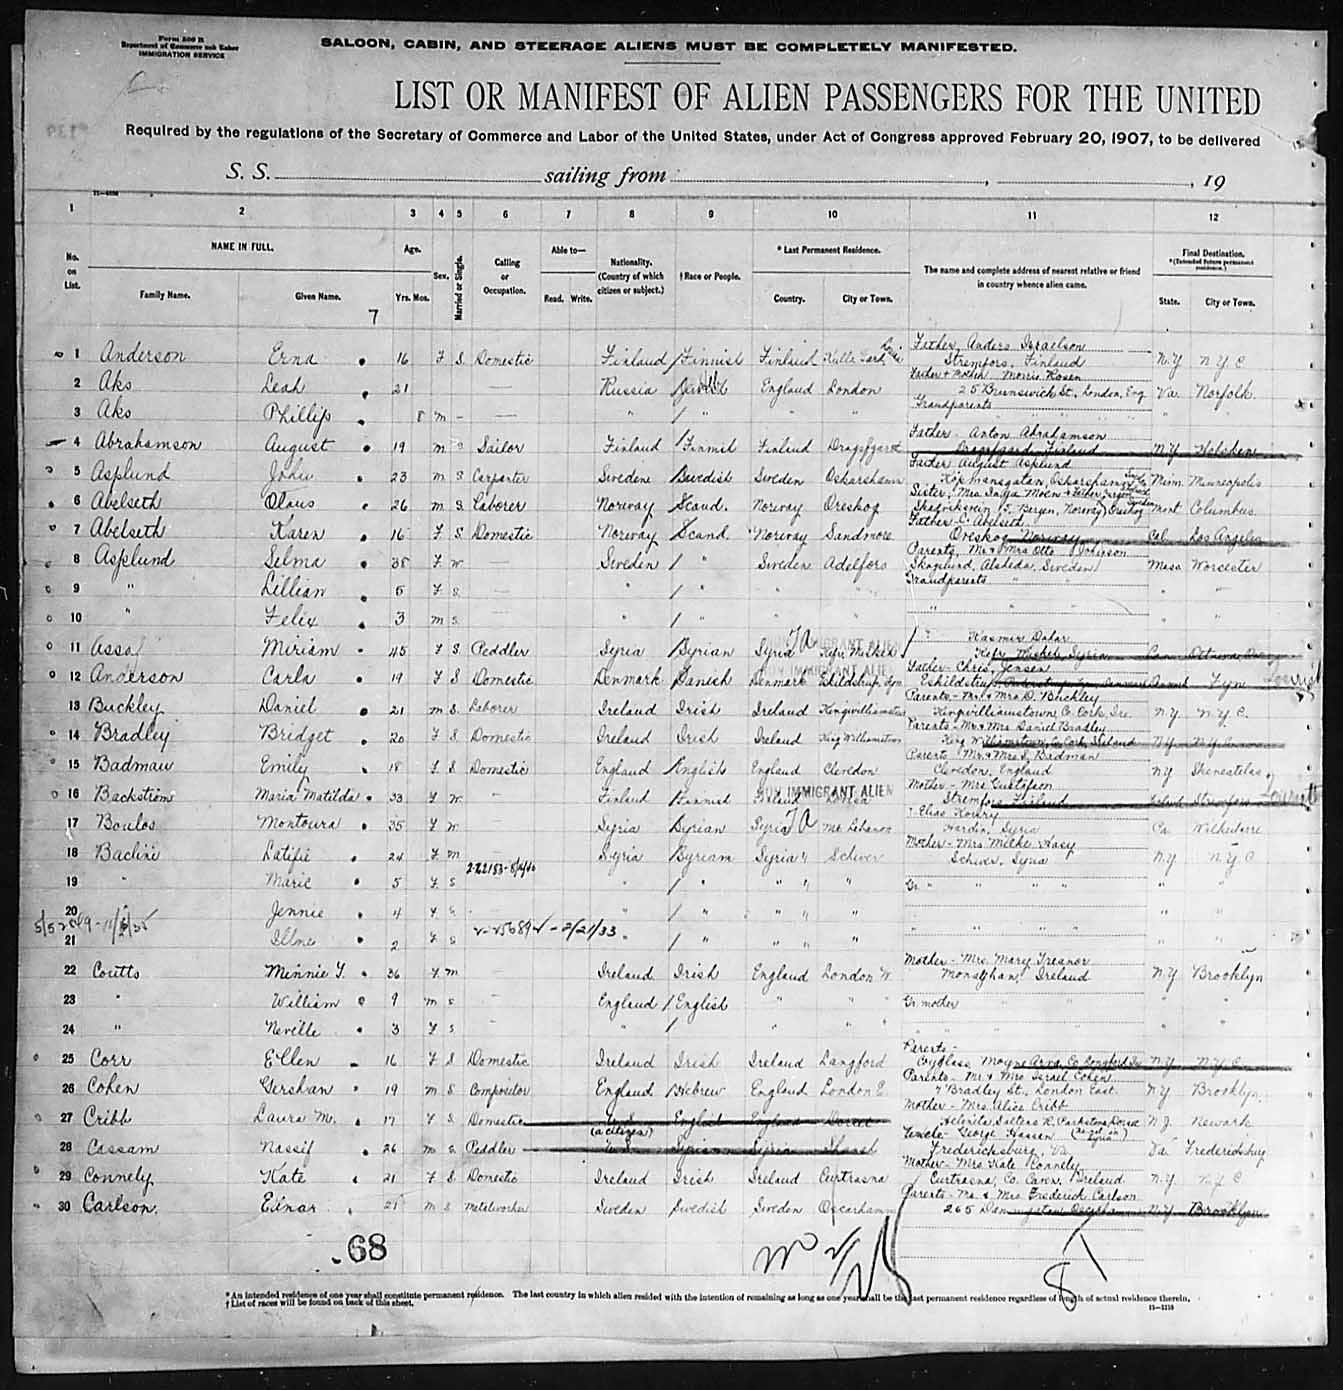 Form 500 B
Department of Commerce and Labor
IMMIGRATION SERVICE
SALOON, CABIN, AND STEERAGE ALIENS MUST BE COMPLETELY MANIFESTED.
LIST OR MANIFEST OF ALIEN PASSENGERS FOR THE UNITED
Required by the regulations of the Secretary of Commerce and Labor of the United States, under Act of Congress approved February 20, 1907, to be delivered
S. S. sailing from , , 19
1 2 3 4 5 6 7 8 9 10 11 12
No. on List. NAME IN FULL. Family Name. Given Name. Age. Yrs. Mos. Sex. Married or Single. Calling or Occupation. Able to— Read. Write. Nationality. (Country of which citizen or subject.) † Race or People. * Last Permanent Residence. Country. City or Town. The name and complete address of nearest relative or friend in country whence alien came. Final Destination. *(Intended future permanent residence.) State. City or Town.
7
1 Anderson Erna 16 F S Domestic Finland Finnish Finland Father, Anders Israelson Stremfors, Finland N.Y N Y C
2 Aks Leah 21 — Russia England London Father & Mother Morris Rosen 25 Brunswick St., London, Eng Va. Norfolk
3 Aks Phillip 8 m - — " " " " Grandparents " "
4 Abrahamson August 19 m S Sailor Finland Finnish Finland Dragsfjard Father - Anton Abrahamson Dragsfjard Finland N.Y Hoboken
5 Asplund John 23 m S Carpenter Sweden Swedish Sweden Oskarshamn Father August Asplund Köpmansgatan, Oskarshamn Minn. Minneapolis
6 Abelseth Olaus 26 m S. Laborer Norway Scand. Norway Oreskog Sister, Mrs Inga Moen Bergen, Norway Mont Columbus
7 Abelseth Karen 16 F S Domestic Norway Scand Norway Sandmore Father C. Abelseth Oreskog Norway Cal Los Angeles
8 Asplund Selma 35 F W — Sweden " Sweden Adelfors Parents, Mr & Mrs Otto Johnson Skoglund, Alsheda, Sweden Mass Worcester
9 " Lillian 5 F S. — " " " " Grandparents " " "
10 " Felix 3 m S. — " " " " " "
11 Assaf Miriam 45 F S Peddler Syria Syrian Syria Kefr Mishki Kasmir Dahar Kefr Mishki, Syria Can Ottawa
12 Anderson Carla 19 F S Domestic Denmark Danish Denmark Father - Chris. Jensen Eskildstrup Fyn
NON IMMIGRANT ALIEN
13 Buckley Daniel 21 m S. Laborer Ireland Irish Ireland Kingwilliamstown Parents - Mr. & Mrs D. Buckley Kingwilliamstown Co Cork, Ire. N.Y. N.Y. C.
14 Bradley Bridget 20 F S Domestic Ireland Irish Ireland King Williamstown Parents - Mr & Mrs Daniel Bradley King Williamstown, Co Cork, Ireland N.Y.
15 Badman Emily 18 F S Domestic England English England Clevedon Parents Mr. & Mrs S. Badman Clevedon, England NY Skeneatelas
16 Backstrom Maria Matilda 33 F W — Finland Finnish Finland Mother - Mrs Gustafson Stremfors Finland
NON IMMIGRANT ALIEN
17 Boulos Montoura 35 F W — Syria Syrian Syria Mt. Lebanon Elias Koury Hardin, Syria Pa. Wilkesbarre
18 Baclini Latifie 24 F m — Syria Syrian Syria Schwer Mother - Mrs Milke Nasy Schwer, Syria N.Y N.Y C
19 " Marie 5 F S " " " " " Gr. " " " " "
20 Jennie 4 F S - " " " " " " "
21 Illne 2 F S " " " " " " " "
22 Coutts Minnie T. 36 F m — Ireland Irish England London W. Mother - Mrs. Mary Treanor Monaghan, Ireland N.Y Brooklyn
23 " William 9 m S — England English " " Gr. mother " "
24 " Neville 3 F S — " " " " " " "
25 Corr Ellen 16 F S Domestic Ireland Irish Ireland Langford Parents - Coyglass Moyne Arva, Co Longford Ire N.Y. N.Y. C.
26 Cohen Gershan 19 m S Compositor England Hebrew England London E. Parents - Mr. & Mrs Israel Cohen 7 Bradley St., London East. N.Y Brooklyn
27 Cribb Laura M. 17 F S Domestic U.S. (a citizen) English England Dorset Mother - Mrs. Alice Cribb N.J. Newark
28 Cassam Nassif 26 m S Peddler U.S. Syrian Syria Uncle - George Hassan Fredericksburg, Va Va Fredericksburg
29 Connely Kate 21 F S Domestic Ireland Irish Ireland Curtrasna Mother - Mrs Kate Connely Curtrasna, Co. Caven, Ireland N.Y. N.Y C
30 Carlson Einar 21 m S Metalworker Sweden Swedish Sweden Oscarhamn Parents - Mr. & Mrs. Frederick Carlson 265 N.Y Brooklyn
68
* An intended residence of one year shall constitute permanent residence. The last country in which alien resided with the intention of remaining as long as one year shall be the last permanent residence regardless of length of actual residence therein.
† List of races will be found on back of this sheet.